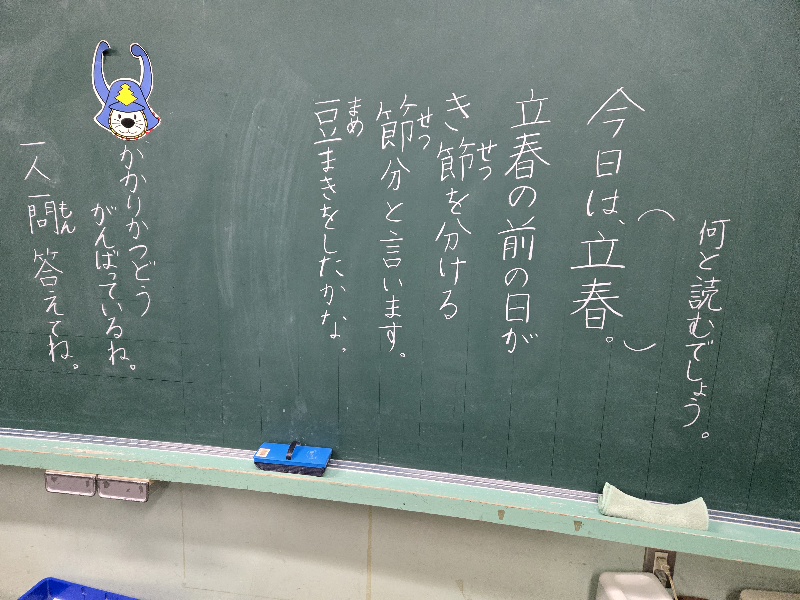 何と読むでしょう。
(　　　　)
今日は、立春。
立春の前の日が
せつ
き節を分ける
せつ
節分と言います。
まめ
豆まきをしたかな。
かかりかつどう
がんばっているね。
もん
一人一問 答えてね。